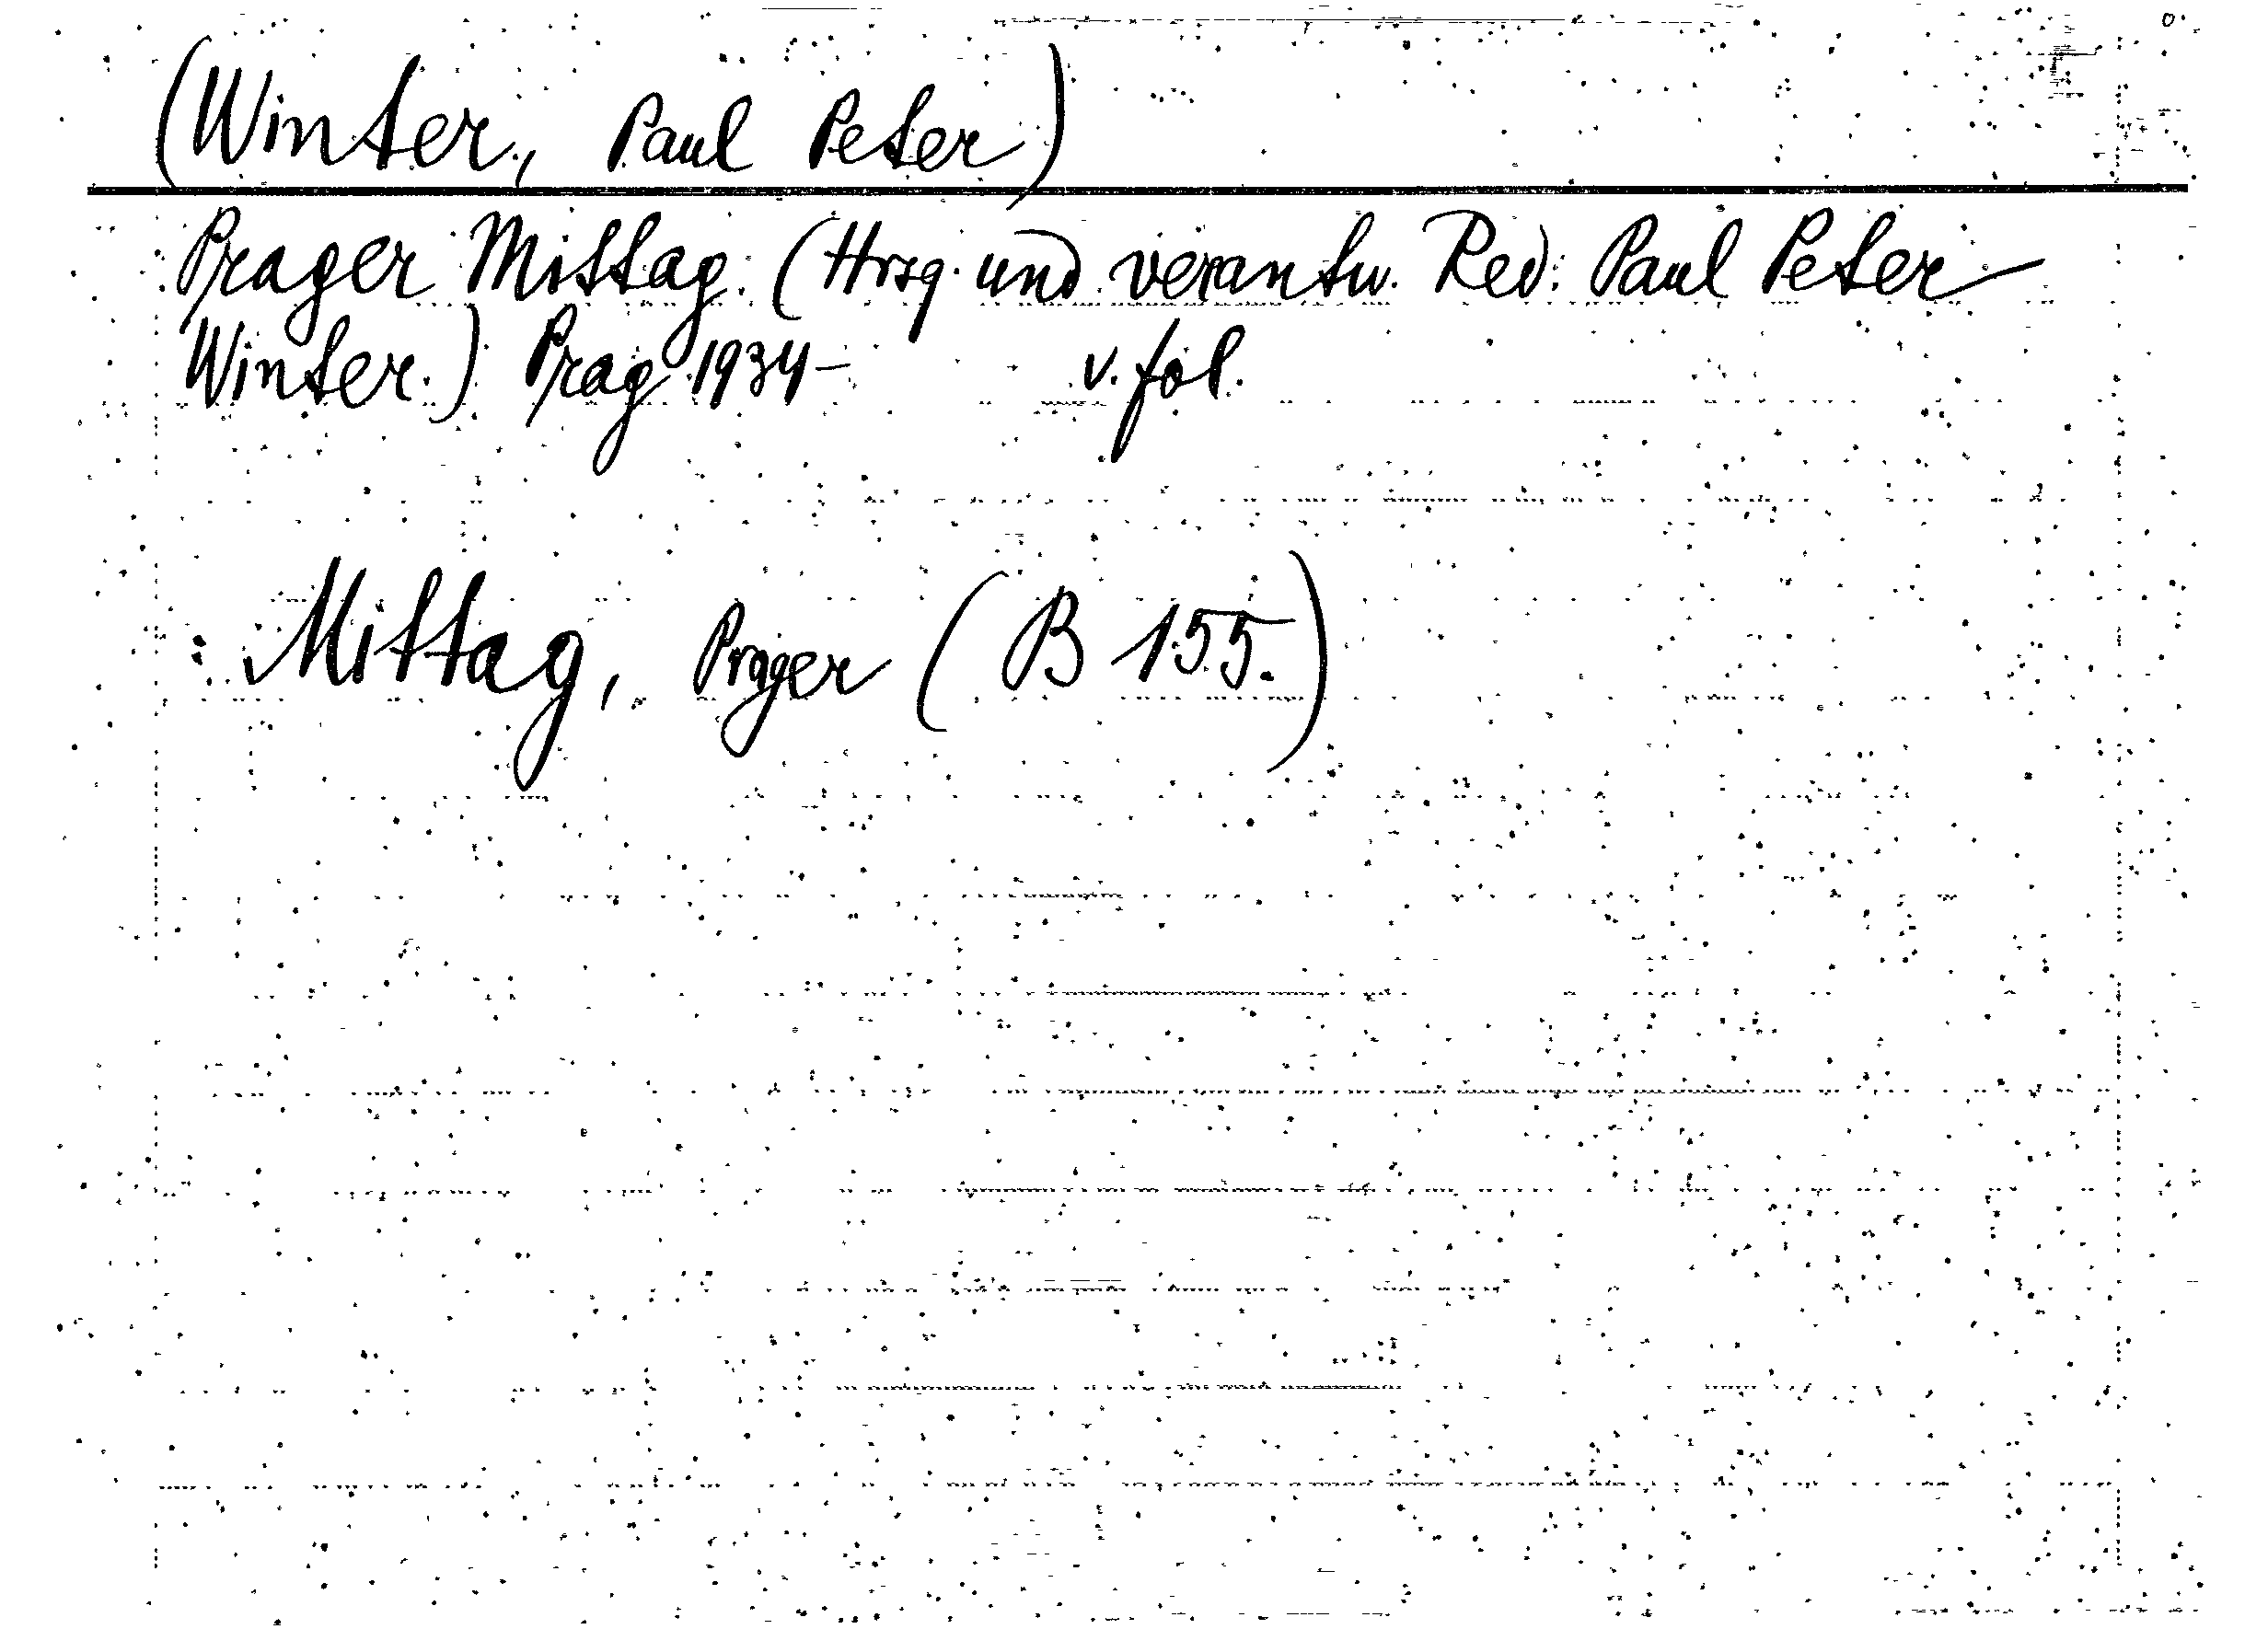 (Winter, Paul Peter)
Prager Mittag. (Hrsg. und verantw. Red: Paul Peter
Winter.) Prag 1934- v. fol.
Mittag, Prager (B 155.)